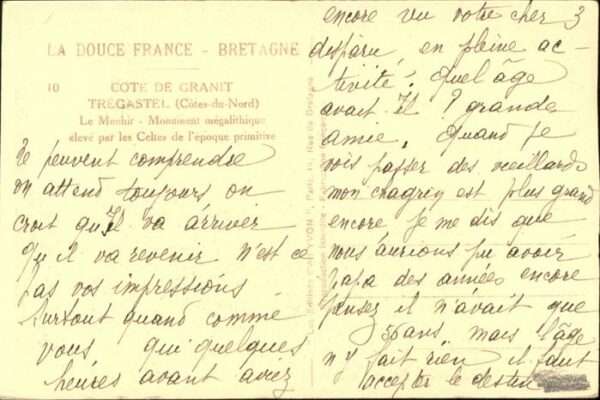 LA DOUCE FRANCE - BRETAGNE
10
COTE DE GRANIT
TRÉGASTEL (Côtes-du-Nord)
Le Menhir - Monument mégalithique
élevé par les Celtes de l'époque primitive
ne peuvent comprendre
on attend toujours on
croit qu'Il va arriver
qu'il va revenir n'est ce
pas vos impressions
surtout quand comme
vous qui quelques
heures avant aviez
encore vu votre cher 3
disparu, en pleine ac-
tivité. Quel âge
avait Il ? grande
amie. Quand je
vois passer des vieillards
mon chagrin est plus grand
encore je me dis que
nous aurions pu avoir
papa des années encore
pensez il n'avait que
56 ans, mais l'âge
n'y fait rien il faut
accepter le destin